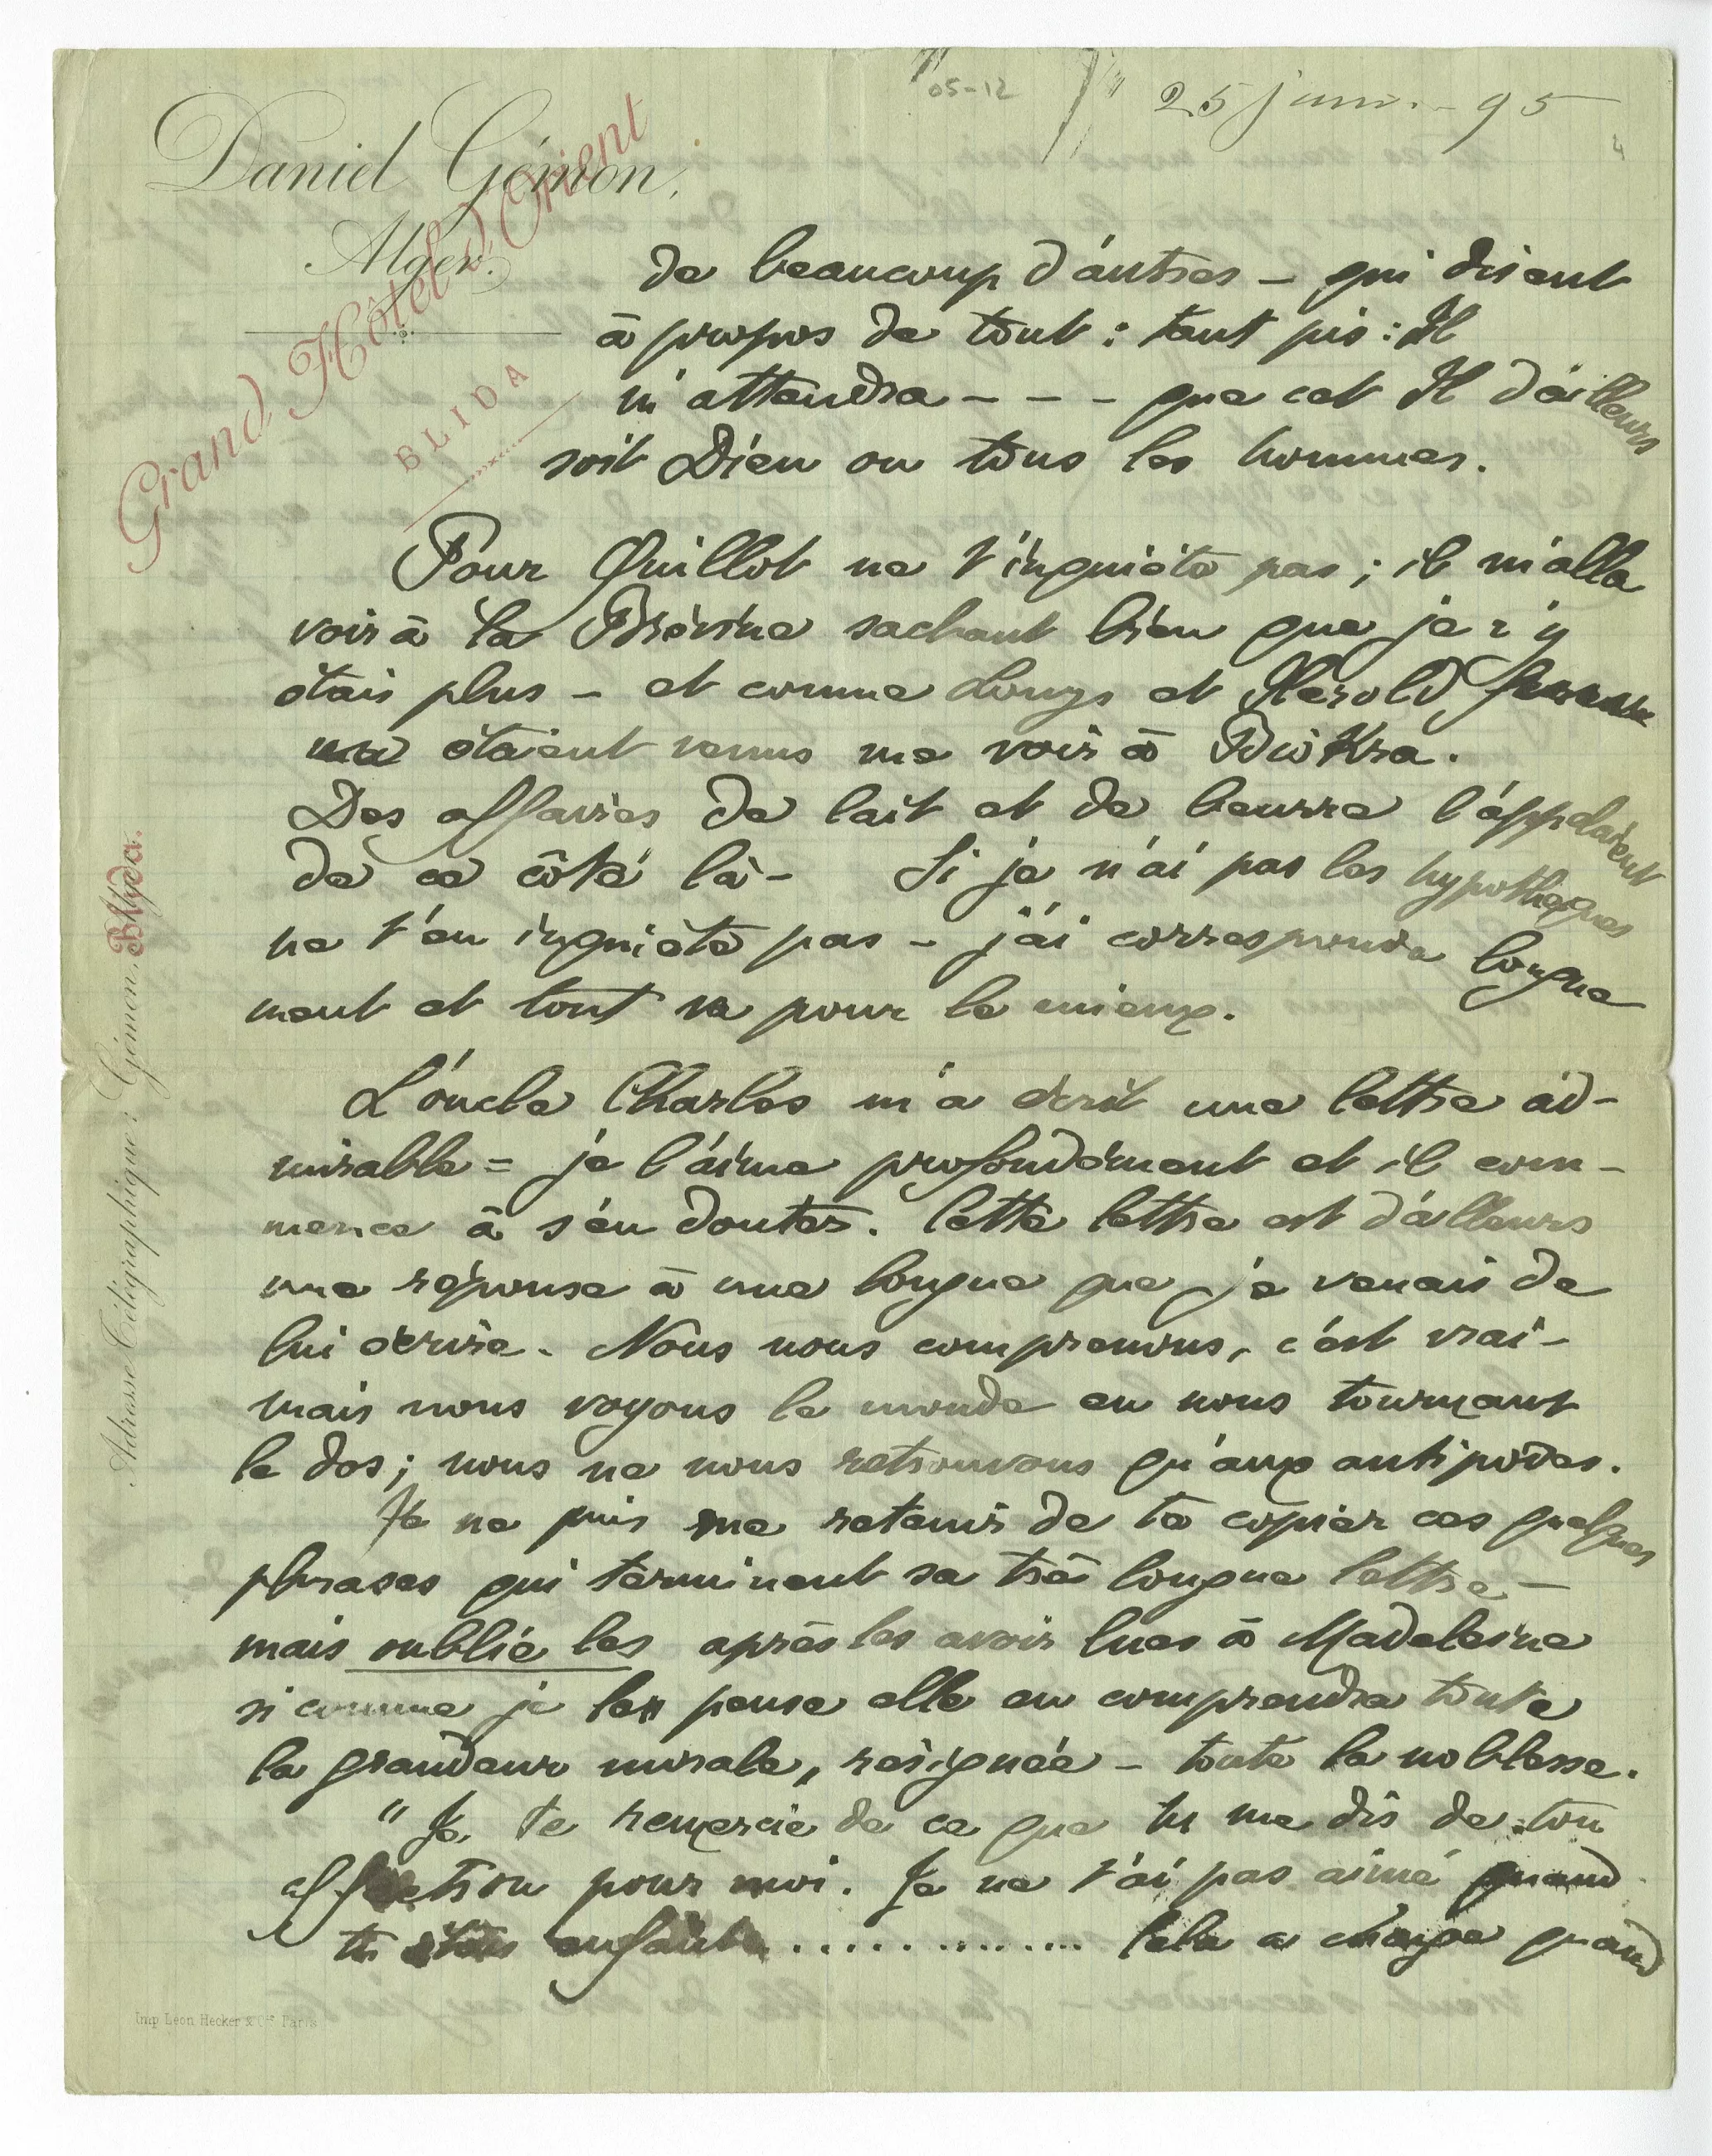 05-12
25 janv. - 95
4
Daniel Gémon,
Alger.
Grand Hôtel d'Orient
BLIDA
de beaucoup d'autres – qui disent
à propos de tout : tant pis : Il
m'attendra - - - que cet Il d'ailleurs
soit Dieu ou tous les hommes.
Pour Quillot ne t'inquiète pas ; il m'alla
voir à la Brévine sachant bien que je n'y
étais plus – et comme Louys et Herold
me étaient venus me voir à Biskra.
Des affaires de lait et de beurre l'appelaient
de ce côté là – Si je n'ai pas les hypothèques
ne t'en inquiète pas – j'ai correspondu longue
ment et tout va pour le mieux.
L'oncle Charles m'a écrit une lettre ad-
mirable = je l'aime profondément et il com-
mence à s'en douter. Cette lettre est d'ailleurs
une réponse à une longue que je venais de
lui écrire. Nous nous comprenons, c'est vrai –
mais nous voyons le monde en nous tournant
le dos ; nous ne nous retrouvons qu'aux antipodes.
Je ne puis me retenir de te copier ces quelques
phrases qui terminent sa très longue lettre –
mais oublie les après les avoir lues à Madeleine
si comme je le pense elle en comprendra toute
la grandeur morale, résignée – toute la noblesse.
" Je te remercie de ce que tu me dis de ton
affection pour moi. Je ne t'ai pas aimé quand
tu étais enfant .............. Cela a changé quand
Adresse Télégraphique : Gémon. Blyda.
Imp Léon Hecker & Cie Paris